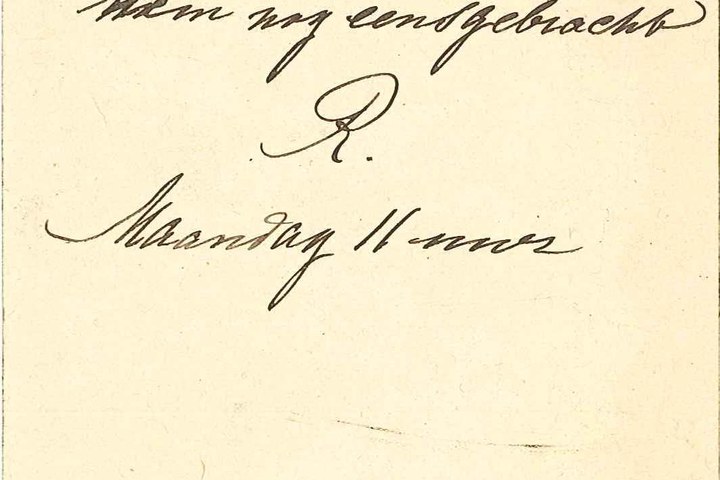 nog eens gebracht
R.
Maandag 11 uur